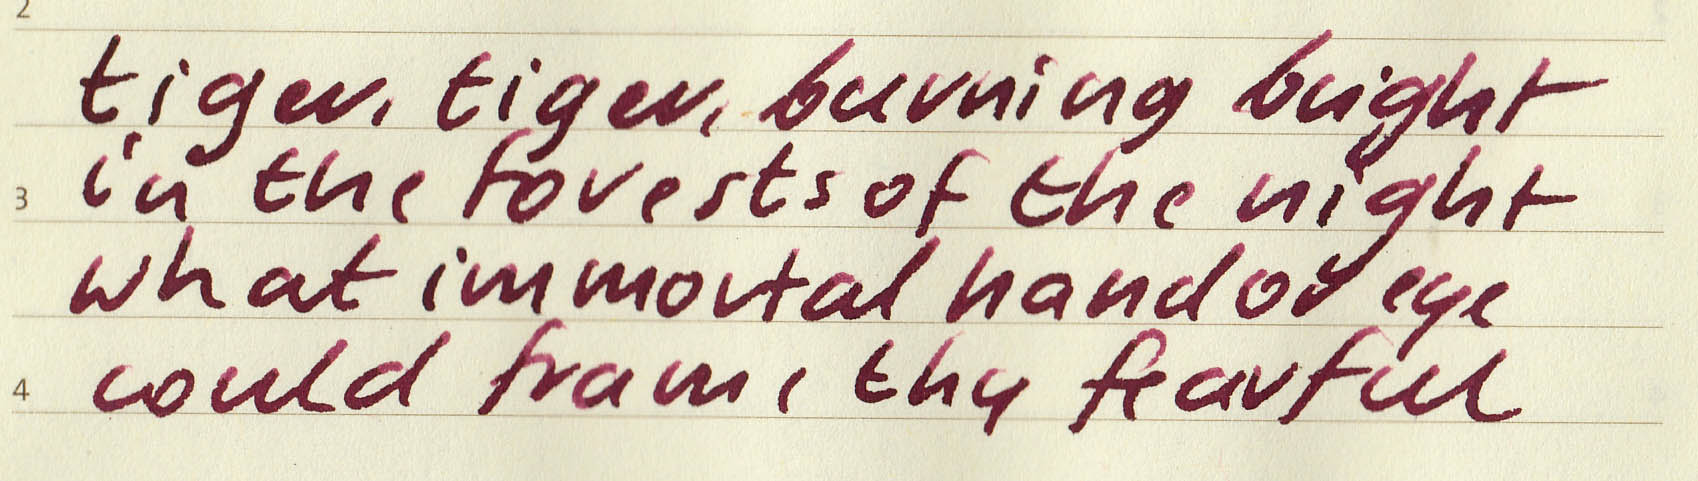 2
tiger, tiger, burning bright
3 in the forests of the night
what immortal hand or eye
4 could frame thy fearful